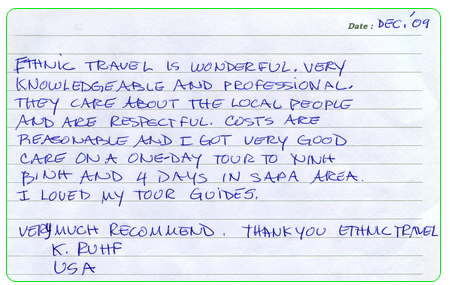 Date : DEC. '09
ETHNIC TRAVEL IS WONDERFUL. VERY
KNOWLEDGEABLE AND PROFESSIONAL.
THEY CARE ABOUT THE LOCAL PEOPLE
AND ARE RESPECTFUL. COSTS ARE
REASONABLE AND I GOT VERY GOOD
CARE ON A ONE-DAY TOUR TO NINH
BINH AND 4 DAYS IN SAPA AREA.
I LOVED MY TOUR GUIDES.
VERY MUCH RECOMMEND. THANK YOU ETHNIC TRAVEL
K. RUHF
USA